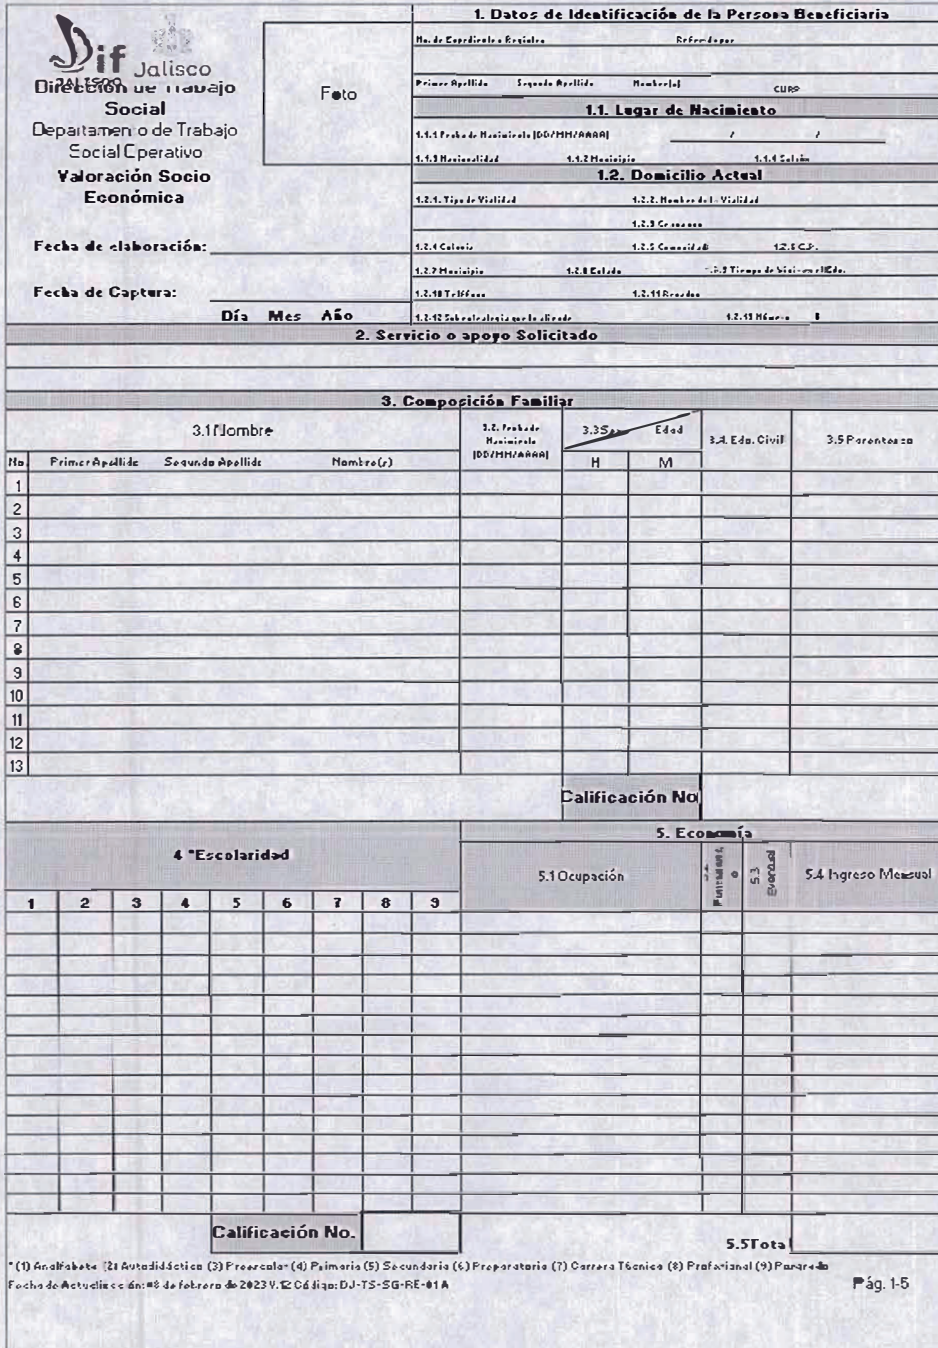 Dif Jalisco
JALISCO
Dirección de Trabajo
Social
Departamento de Trabajo
Social Operativo
Valoración Socio
Económica
Foto
Fecha de elaboración:
Fecha de Captura:
Día Mes Año
1. Datos de Identificación de la Persona Beneficiaria
No. de Expediente o Registro Referido por
Primer Apellido Segundo Apellido Nombre(s) CURP
1.1. Lugar de Nacimiento
1.1.1 Fecha de Nacimiento (DD/MM/AAAA) / /
1.1.3 Nacionalidad 1.1.2 Municipio 1.1.4
1.2. Domicilio Actual
1.2.1. Tipo de Vialidad 1.2.2. Nombre de la Vialidad
1.2.3
1.2.4 Colonia 1.2.5 Comunidad 1.2.6 C.P.
1.2.7 Municipio 1.2.8 Estado 1.2.9 Tiempo de Vivir en el Edo.
1.2.10 Teléfono 1.2.11
1.2.12 1.2.13 Número
2. Servicio o apoyo Solicitado
3. Composición Familiar
3.1 Nombre
3.2. Fecha de Nacimiento (DD/MM/AAAA)
3.3 Sexo Edad
3.4. Edo. Civil
3.5 Parentesco
No. Primer Apellido Segundo Apellido Nombre(s) H M
1
2
3
4
5
6
7
8
9
10
11
12
13
Calificación No
4 *Escolaridad
5. Economía
5.1 Ocupación
5.3 Eventual
5.4 Ingreso Mensual
1 2 3 4 5 6 7 8 9
Calificación No.
5.5 Total
*(1) Analfabeta (2) Autodidáctica (3) Preescolar (4) Primaria (5) Secundaria (6) Preparatoria (7) Carrera Técnica (8) Profesional (9) Posgrado
Fecha de Actualización: 08 de febrero de 2023 V.12 Código: DJ-TS-SG-RE-01 A
Pág. 1-5